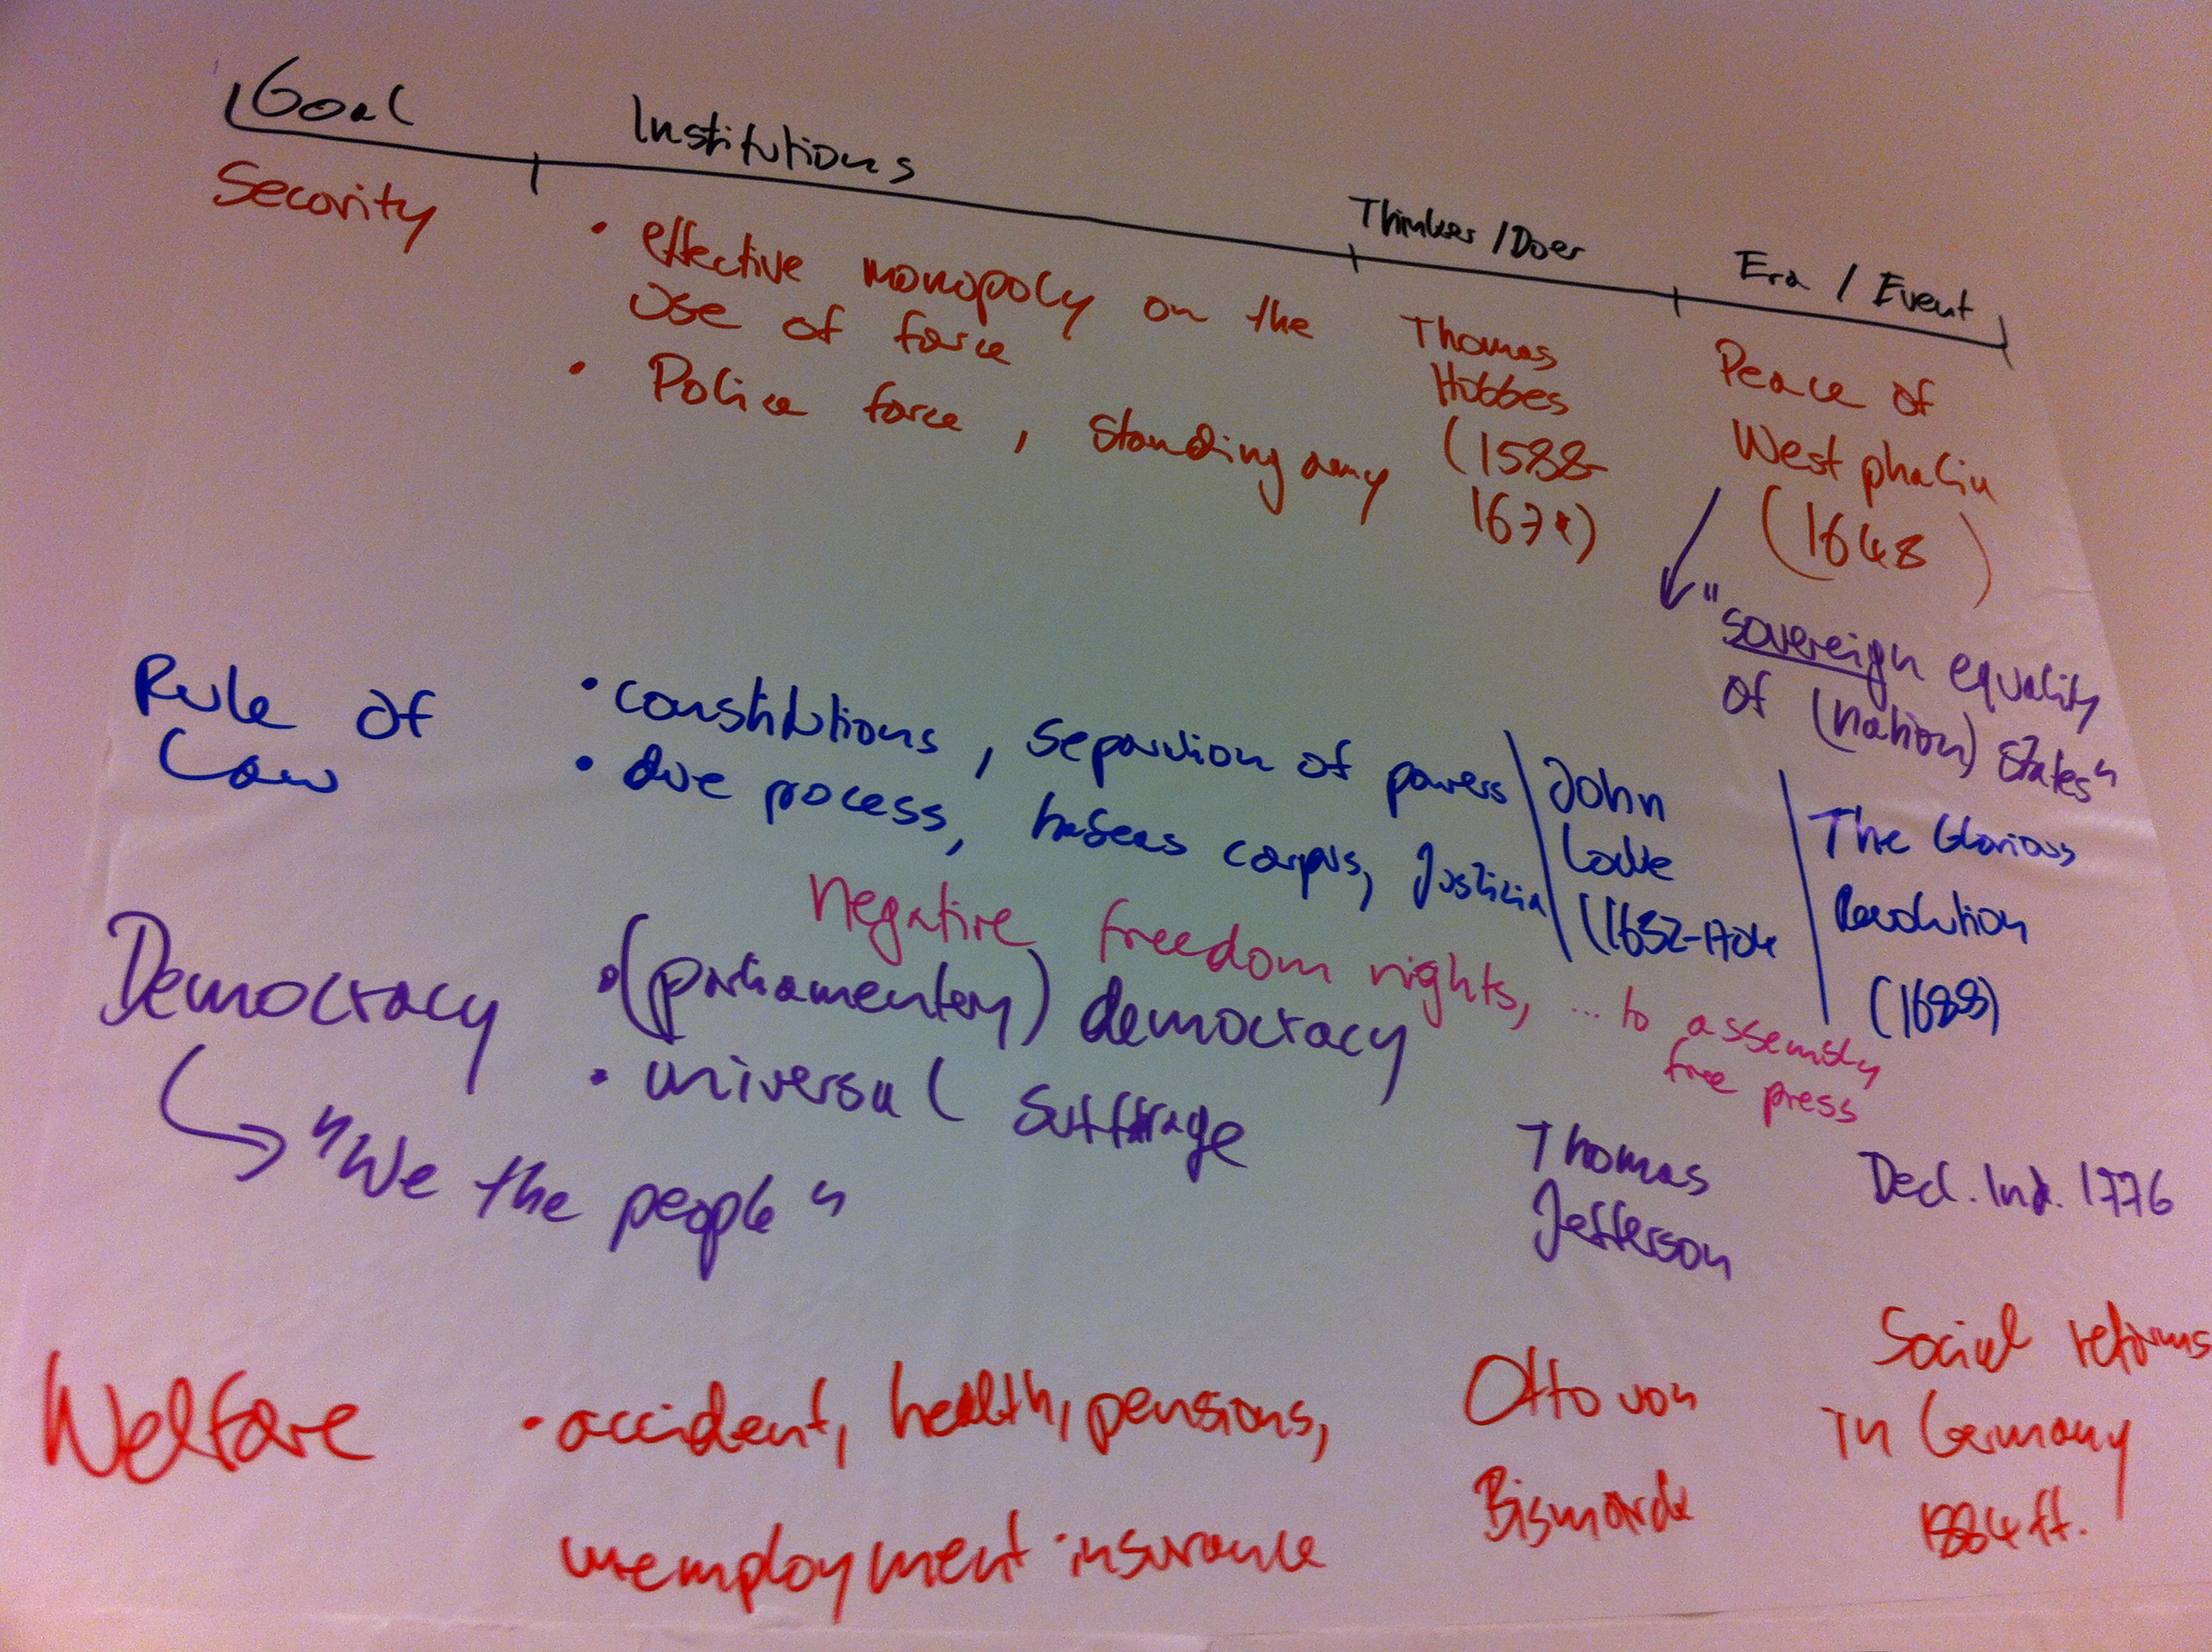 Goal Institutions Thinker / Doer Era / Event
Security
• effective monopoly on the
use of force
• Police force, standing army
Thomas
Hobbes
(1588-
Peace of
Westphalia
(1648)
"sovereign equality
of (nation) states"
Rule of
Law
• constitutions, separation of powers
• due process, habeas corpus, Justizia
John
Locke
(1632-1704
The Glorious
Revolution
(1688)
negative freedom rights, ... to assembly
free press
Democracy
• (parliamentary) democracy
• universal suffrage
"We the people"
Thomas
Jefferson
Decl. Ind. 1776
Welfare
• accident, health, pensions,
unemployment insurance
Otto von
Bismarck
Social reforms
in Germany
1884 ff.